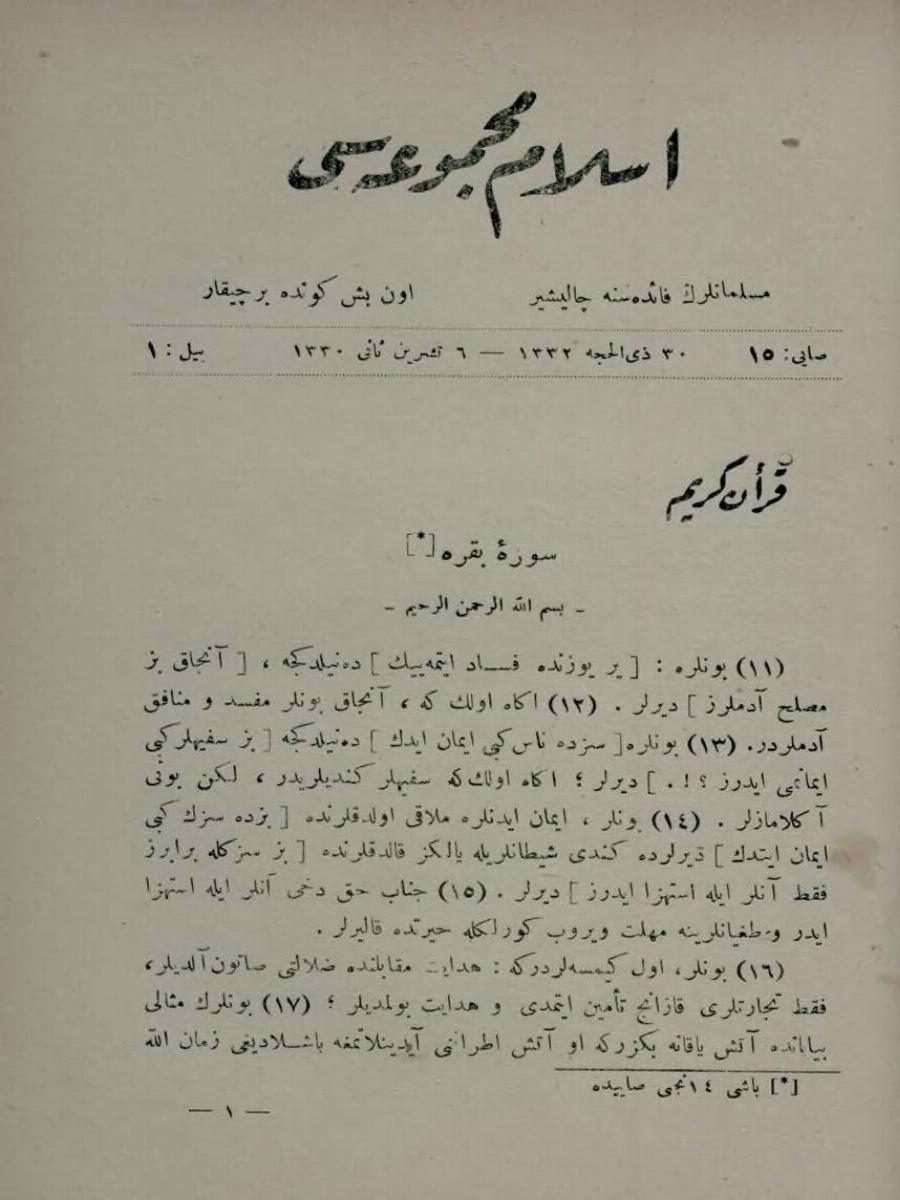 اسلام مجموعه‌سی
مسلمانلرڭ فائده‌سنه چالیشیر
اون بش كونده بر چیقار
صایی : ١٥
٣٠ ذی‌الحجه ١٣٣٢ — ٦ تشرین ثانی ١٣٣٠
ییل : ١
قرأن كریم
سورهٔ بقره [*]
- بسم الله الرحمن الرحیم -
(١١) بونلره : [ یر یوزنده فساد ایتمه‌ییك ] ده‌نیلدكجه ، [ آنجاق بز
مصلح آدملرز ] دیرلر . (١٢) اكاه اولك كه ، آنجاق بونلر مفسد و منافق
آدملردر. (١٣) بونلره [ سزده ناس كبی ایمان ایدك ] ده‌نیلدكجه [ بز سفیهلر كبی
ایمانمی ایدرز ؟ ! . ] دیرلر ؛ اكاه اولك كه سفیهلر كندیلریدر ، لكن بونی
آكلامازلر . (١٤) بونلر ، ایمان ایدنلره ملاقی اولدقلرنده [ بزده سزك كبی
ایمان ایتدك ] دیرلرده كندی شیطانلریله یالكز قالدقلرنده [ بز سزكله برابرز
فقط آنلر ایله استهزا ایدرز ] دیرلر . (١٥) جناب حق دخی آنلر ایله استهزا
ایدر و طغیانلرینه مهلت ویروب كورلكله حیرتده قالیرلر .
(١٦) بونلر، اول كیمسه‌لردركه : هدایت مقابلنده ضلالتی صاتون آلدیلر،
فقط تجارتلری قازانج تأمین ایتمدی و هدایت بولمدیلر ؛ (١٧) بونلرك مثالی
بیابانده آتش یاقانه بكزركه او آتش اطرافی آیدینلاتمغه باشلادیغی زمان الله
[*] باشی ١٤نجی صاییده
— ١ —